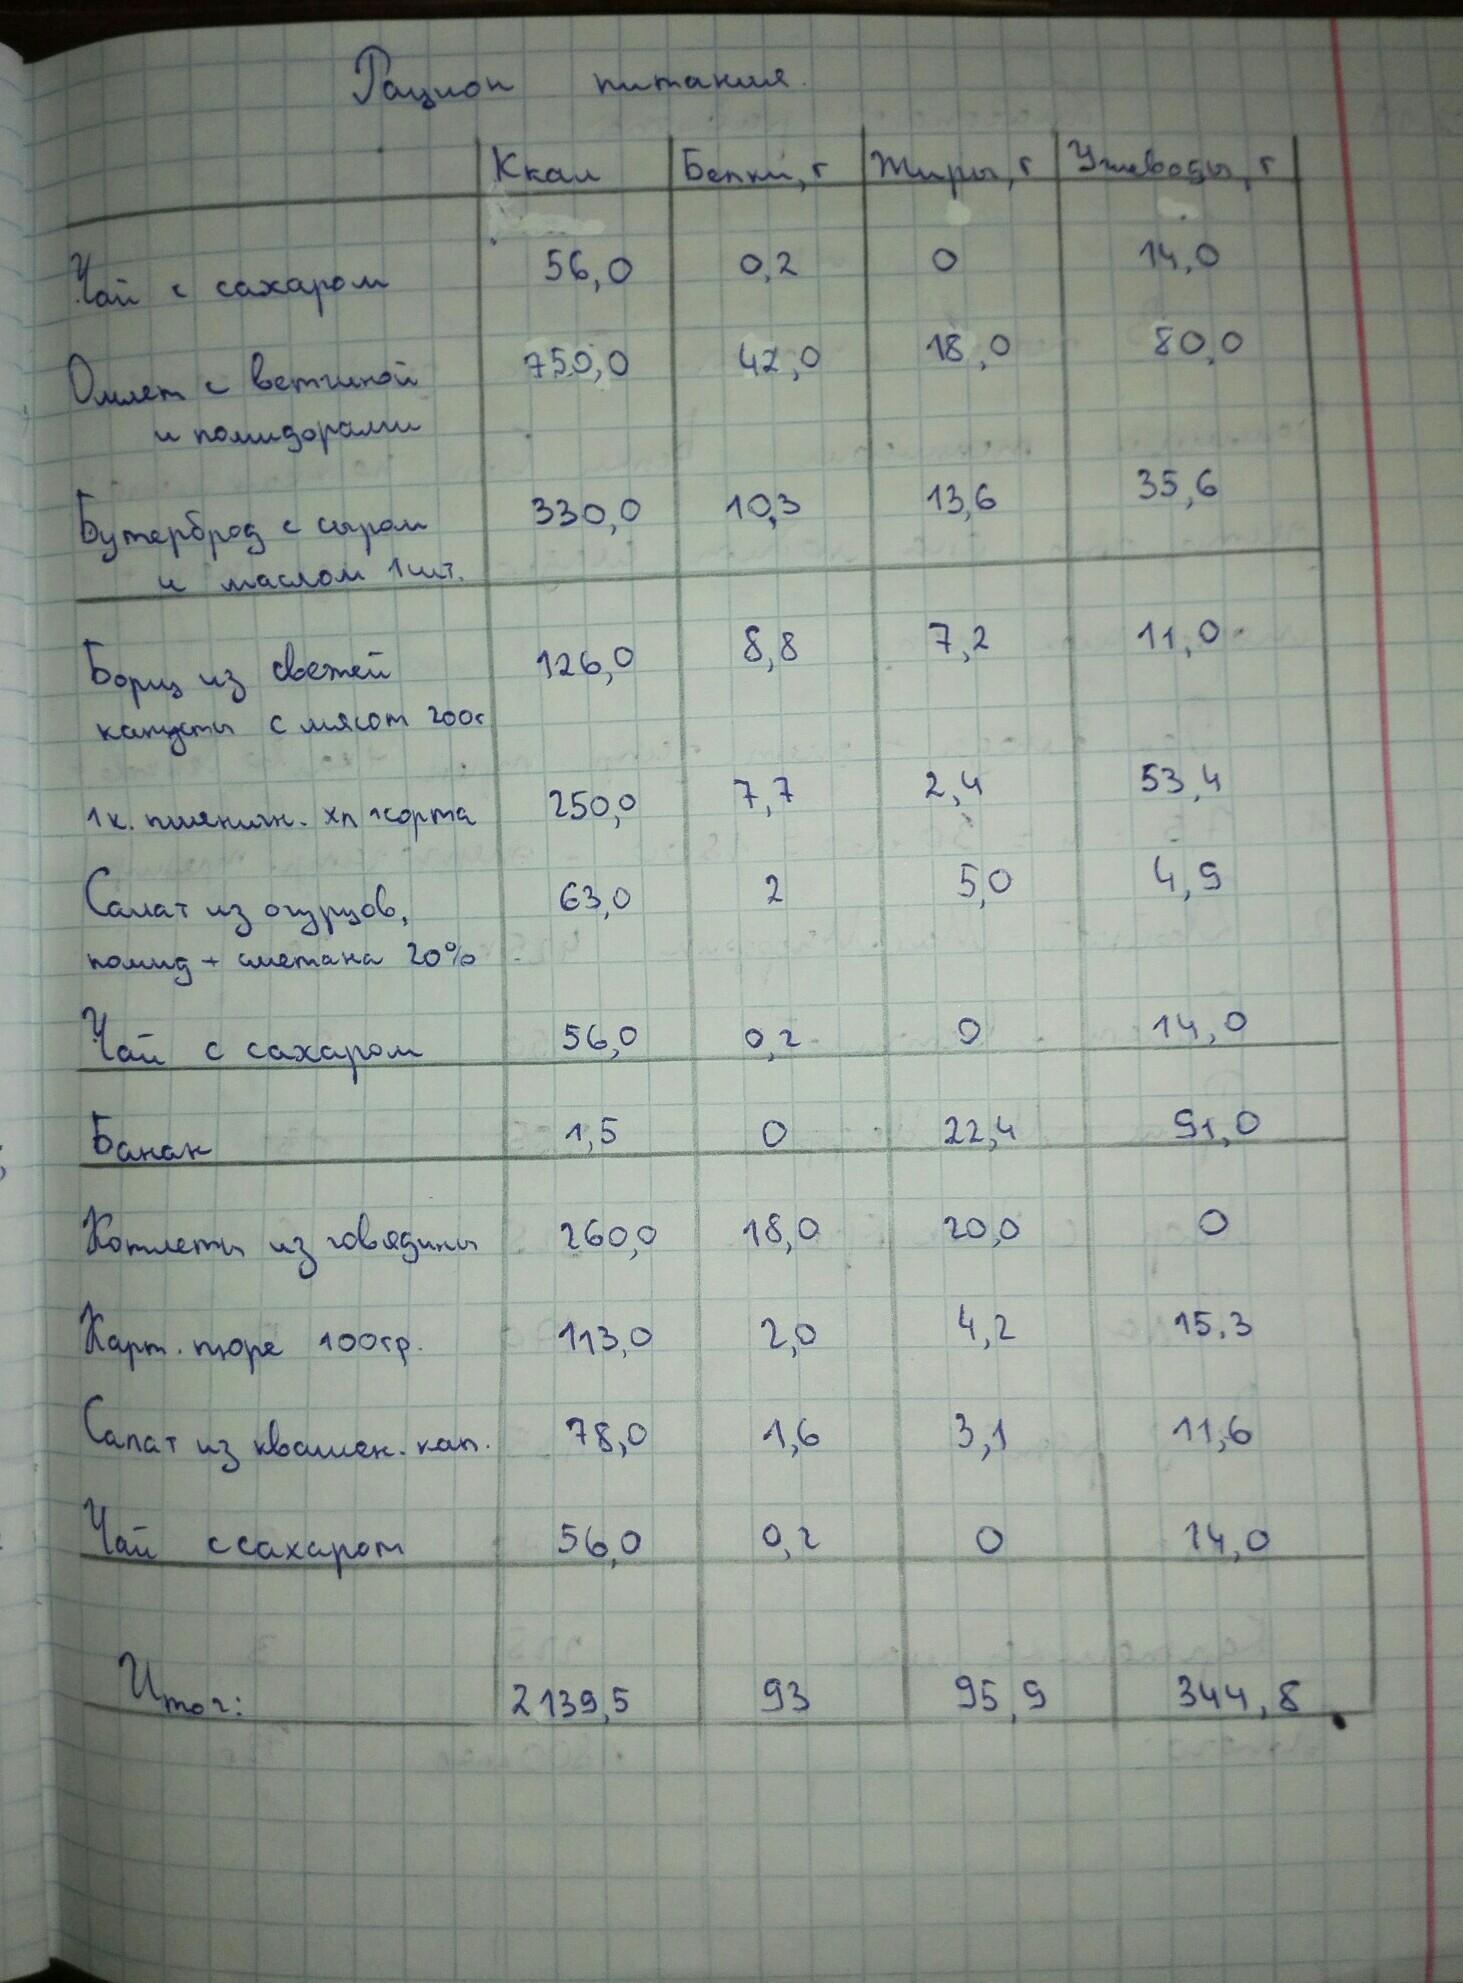 Рацион питания.
Ккал Белки, г Жиры, г Углеводы, г
Чай с сахаром 56,0 0,2 0 14,0
Омлет с ветчиной 750,0 42,0 18,0 80,0
и помидорами
Бутерброд с сыром 330,0 10,3 13,6 35,6
и маслом 1шт.
Борщ из свежей 126,0 8,8 7,2 11,0
капусты с мясом 200г
1к. пшеничн. хл 1сорта 250,0 7,7 2,4 53,4
Салат из огурцов, 63,0 2 5,0 4,9
помид + сметана 20%
Чай с сахаром 56,0 0,2 0 14,0
Банан 1,5 0 22,4 91,0
Котлеты из говядины 260,0 18,0 20,0 0
Карт. пюре 100гр. 113,0 2,0 4,2 15,3
Салат из квашен. кап. 78,0 1,6 3,1 11,6
Чай с сахаром 56,0 0,2 0 14,0
Итог: 2139,5 93 95,9 344,8